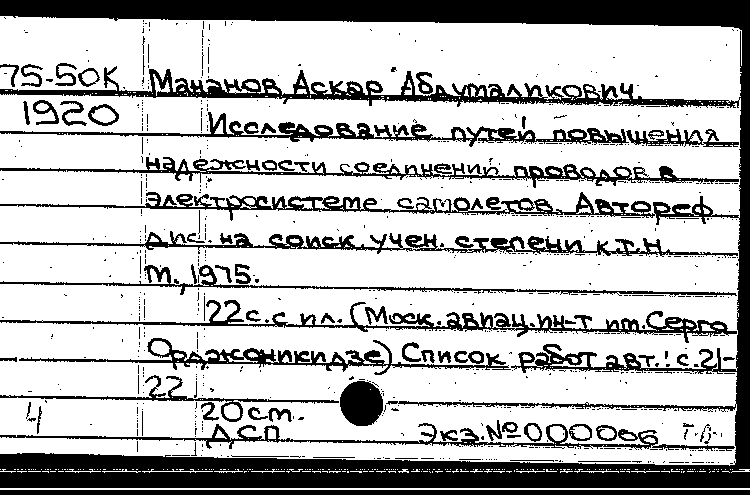 75-50К Мананов, Аскар Абдумаликович.
1920 Исследование путей повышения
надежности соединений проводов в
электросистеме самолетов. Автореф
дис. на соиск. учен. степени к.т.н.
М., 1975.
22с. с ил. (Моск. авиац. ин-т им. Серго
Орджоникидзе) Список работ авт.: с.21-
22
4 20см.
ДСП. Экз.№000066